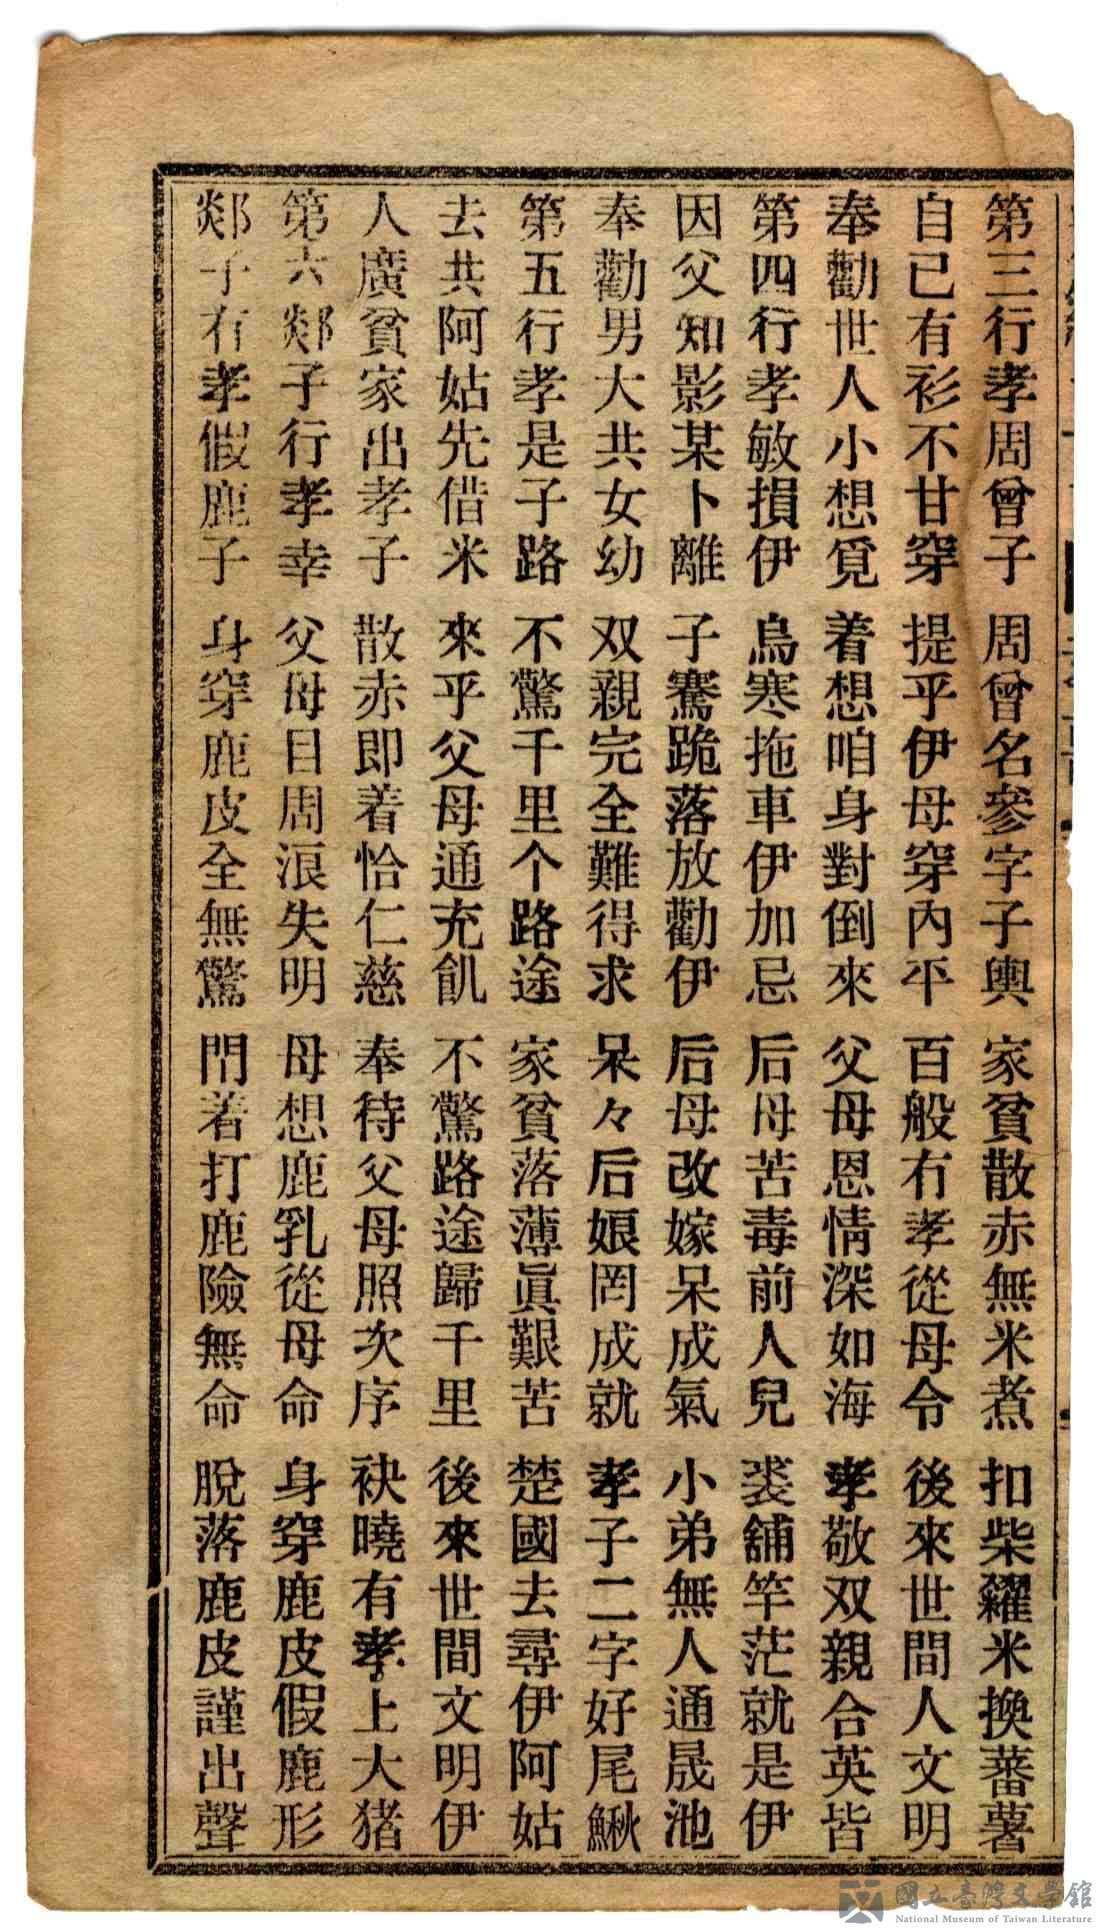 第三行孝周曾子　周曾名參字子輿　家貧散赤無米煮　扣柴糴米換蕃薯
自己有衫不甘穿　提乎伊母穿內平　百般冇孝從母令　後來世間人文明
奉勸世人小想覓　着想咱身對倒來　父母恩情深如海　孝敬双親合英皆
第四行孝敏損伊　烏寒拖車伊加忌　后母苦毒前人兒　裘舖竿茫就是伊
因父知影某卜離　子騫跪落放勸伊　后母改嫁呆成氣　小弟無人通晟池
奉勸男大共女幼　双親完全難得求　呆々后娘罔成就　孝子二字好尾鰍
第五行孝是子路　不驚千里个路途　家貧落薄眞艱苦　楚國去尋伊阿姑
去共阿姑先借米　來乎父母通充飢　不驚路途歸千里　後來世間文明伊
人廣貧家出孝子　散赤即着恰仁慈　奉待父母照次序　袂曉有孝上大猪
第六郯子行孝幸　父母目周浪失明　母想鹿乳從母命　身穿鹿皮假鹿形
郯子有孝假鹿子　身穿鹿皮全無驚　閂着打鹿險無命　脫落鹿皮謹出聲
國立臺灣文學館
National Museum of Taiwan Literature